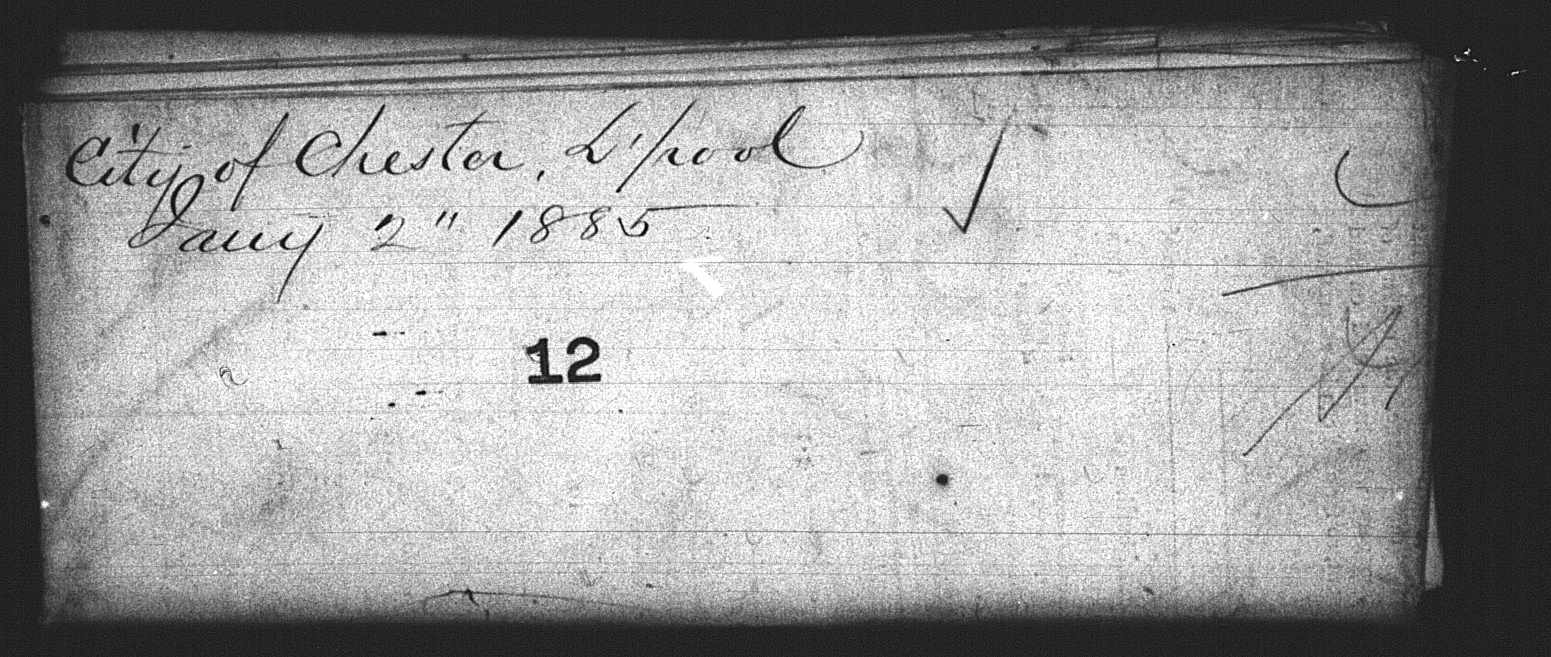 City of Chester, L'pool
Jany 2" 1885
12